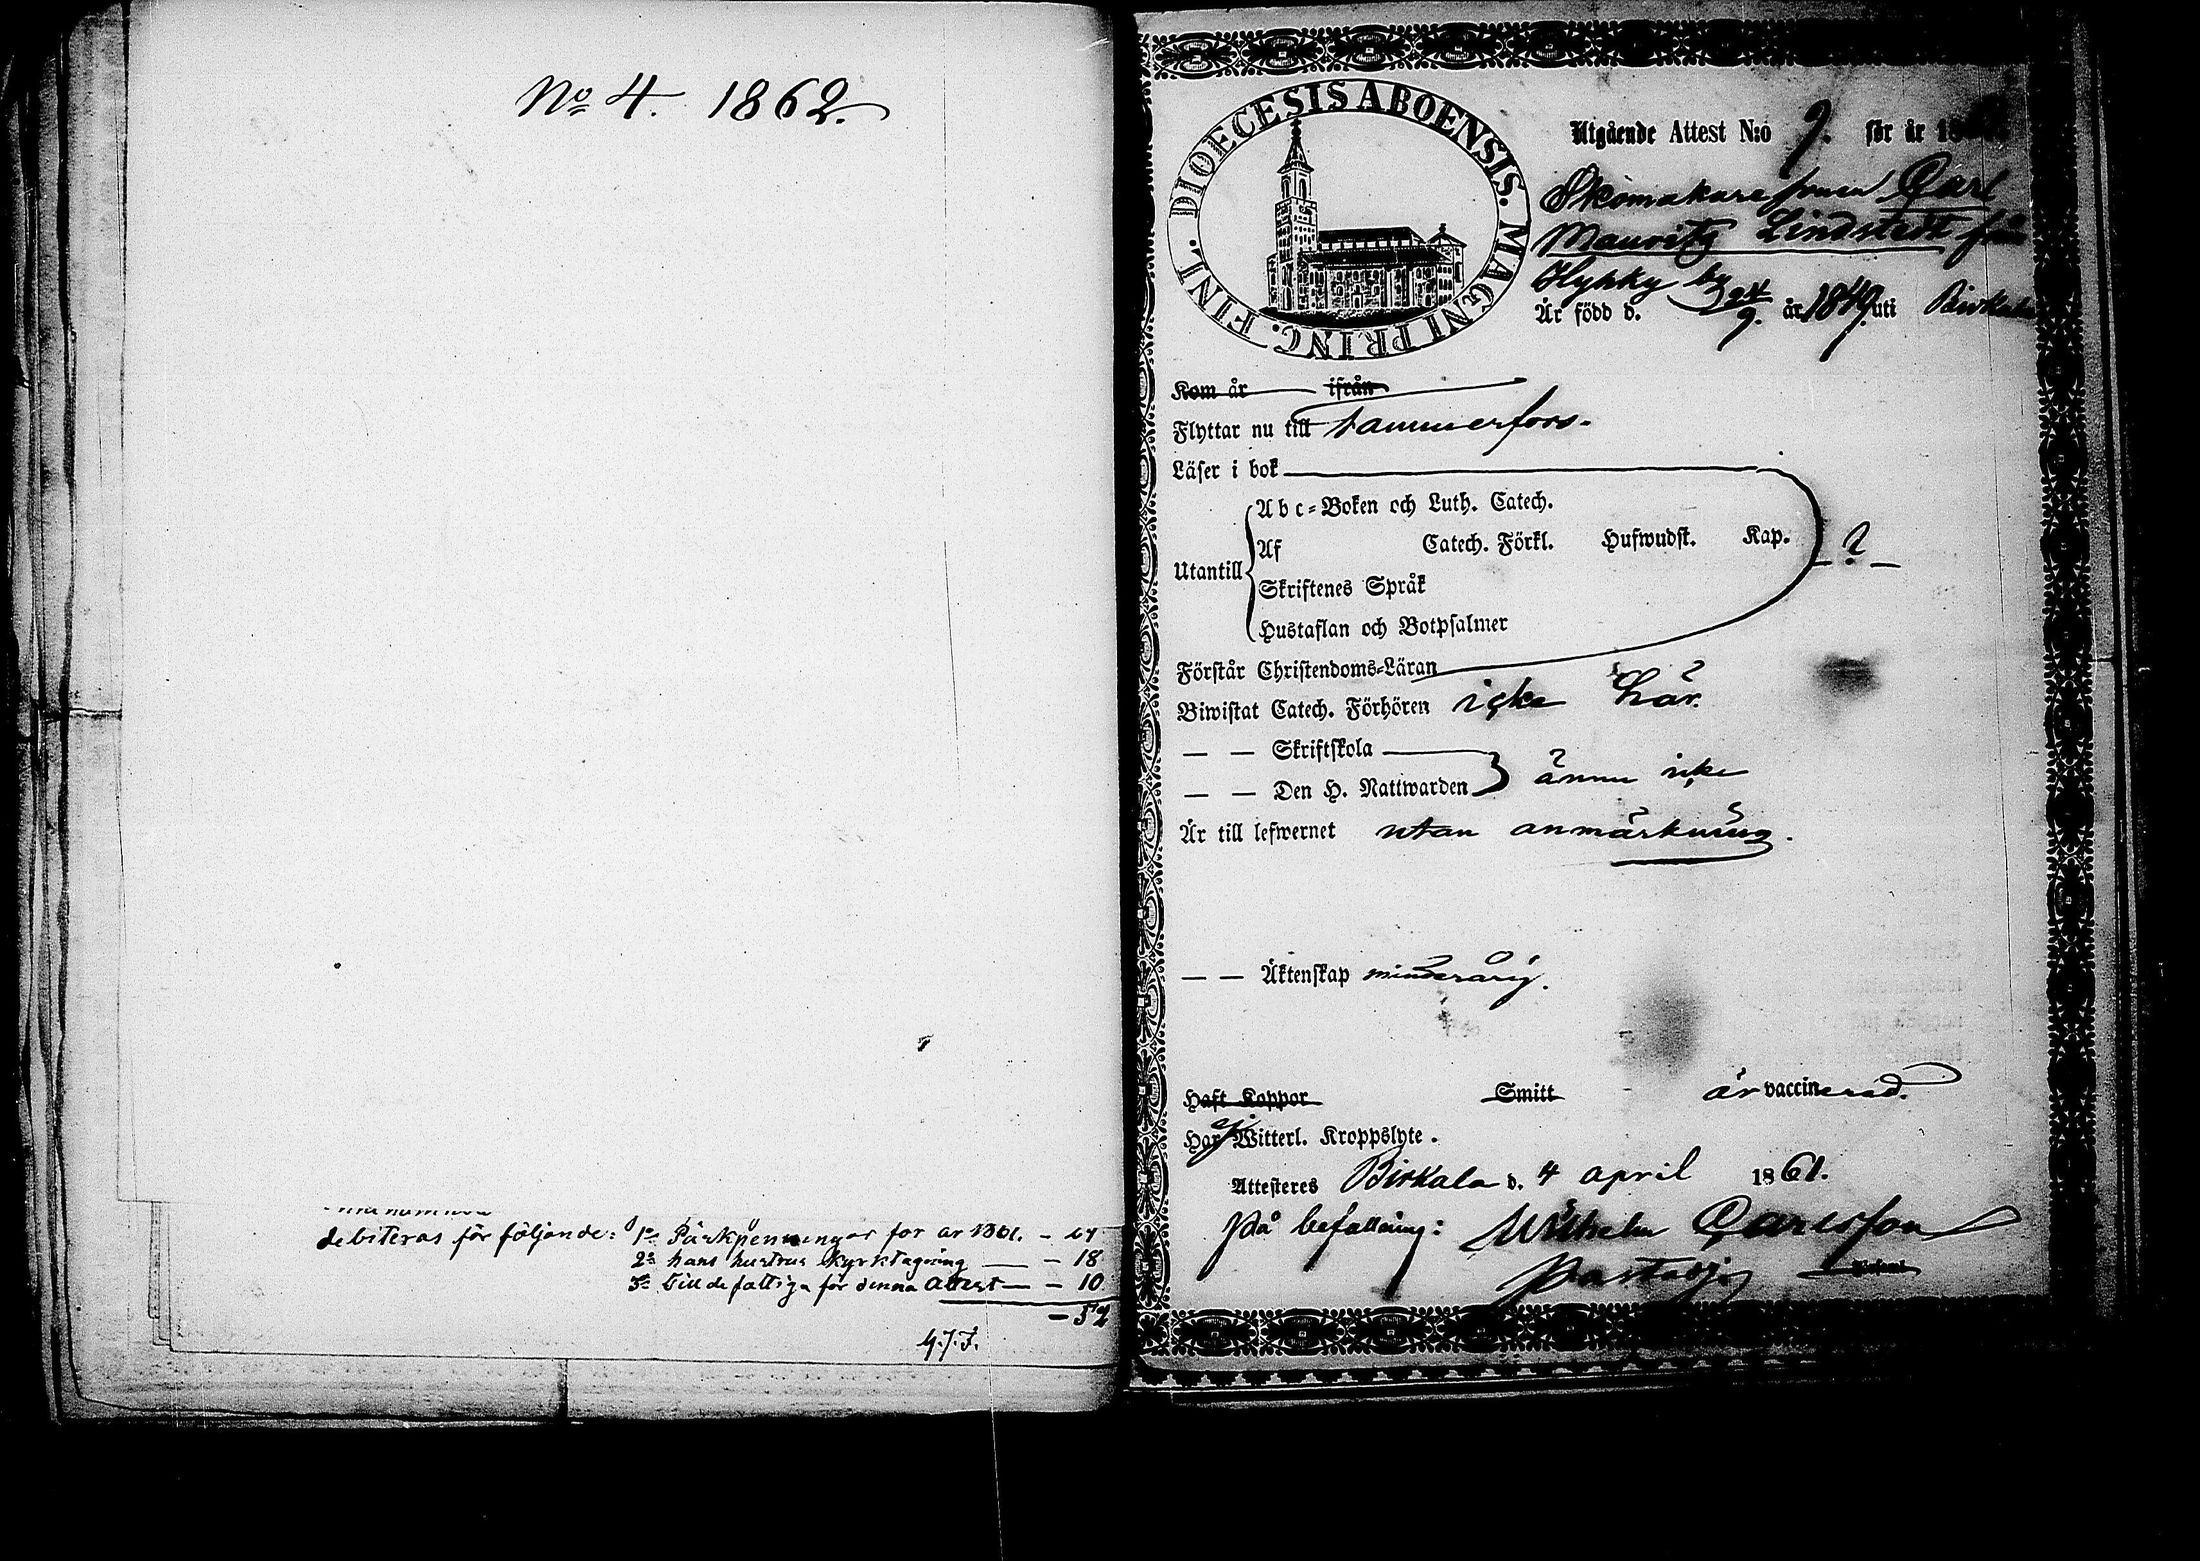 No 4. 1862.
debiteras för följande: 1o Påskpenningar för år 1861. –
2o hans hustrus kyrktagning — – 18
3o till de fattiga för denna Attest — – 10
– 52
DIOECESIS ABOENSIS. MAGNI PRINC. FINL.
Utgående Attest N:o 9. för år 18
Skomakaresonen Carl
Mauritz Lindstedt från
Hyhky by
Är född d. 24/9. år 1849. uti Birkala
Kom år ifrån
Flyttar nu till Tammerfors.
Läser i bok
Utantill
Abc-Boken och Luth. Catech.
Af Catech. Förkl. Hufwudst. Kap. – ? –
Skriftenes Språk
Hustaflan och Botpsalmer
Förstår Christendoms-Läran
Biwistat Catech. Förhören icke här.
— — Skriftskola
— — Den H. Nattwarden ännu icke
Är till lefwernet utan anmärkning.
— — Äktenskap minderårig.
Haft Koppor Smitt är vaccinerad.
Har ej Witterl. Kroppslyte.
Attesteres Birkala d. 4 april 1861.
På befallning: Wilhelm Carlsson
Past. adj.